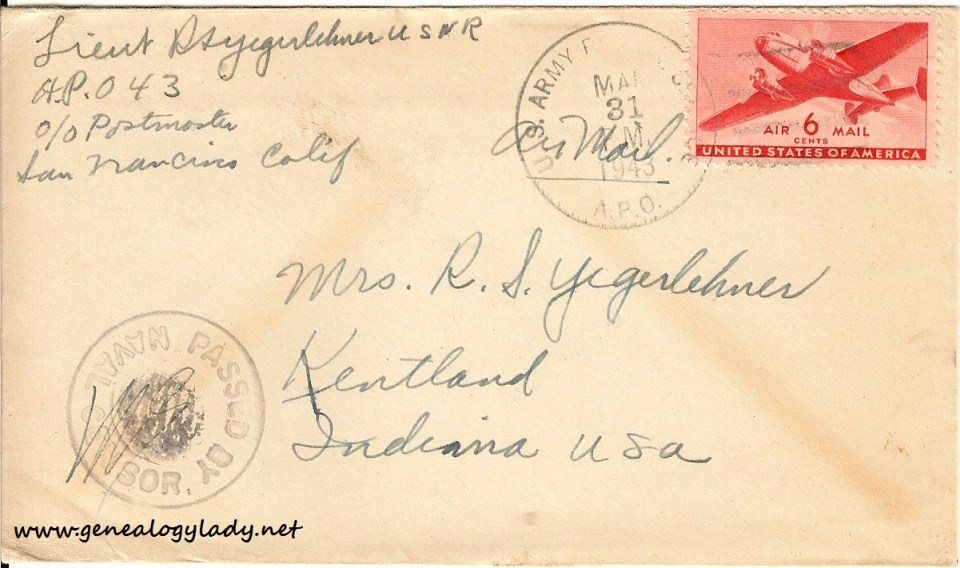 Lieut RSYegerlehner USNR
A.P.O 43
c/o Postmaster
San Francisco Calif
U.S. ARMY
MAR
31
M
1943
A.P.O.
Air Mail.
AIR 6 MAIL
CENTS
UNITED STATES OF AMERICA
Mrs. R. S. Yegerlehner
Kentland
Indiana USA
PASSED BY
NAVAL
SOR
www.genealogylady.net